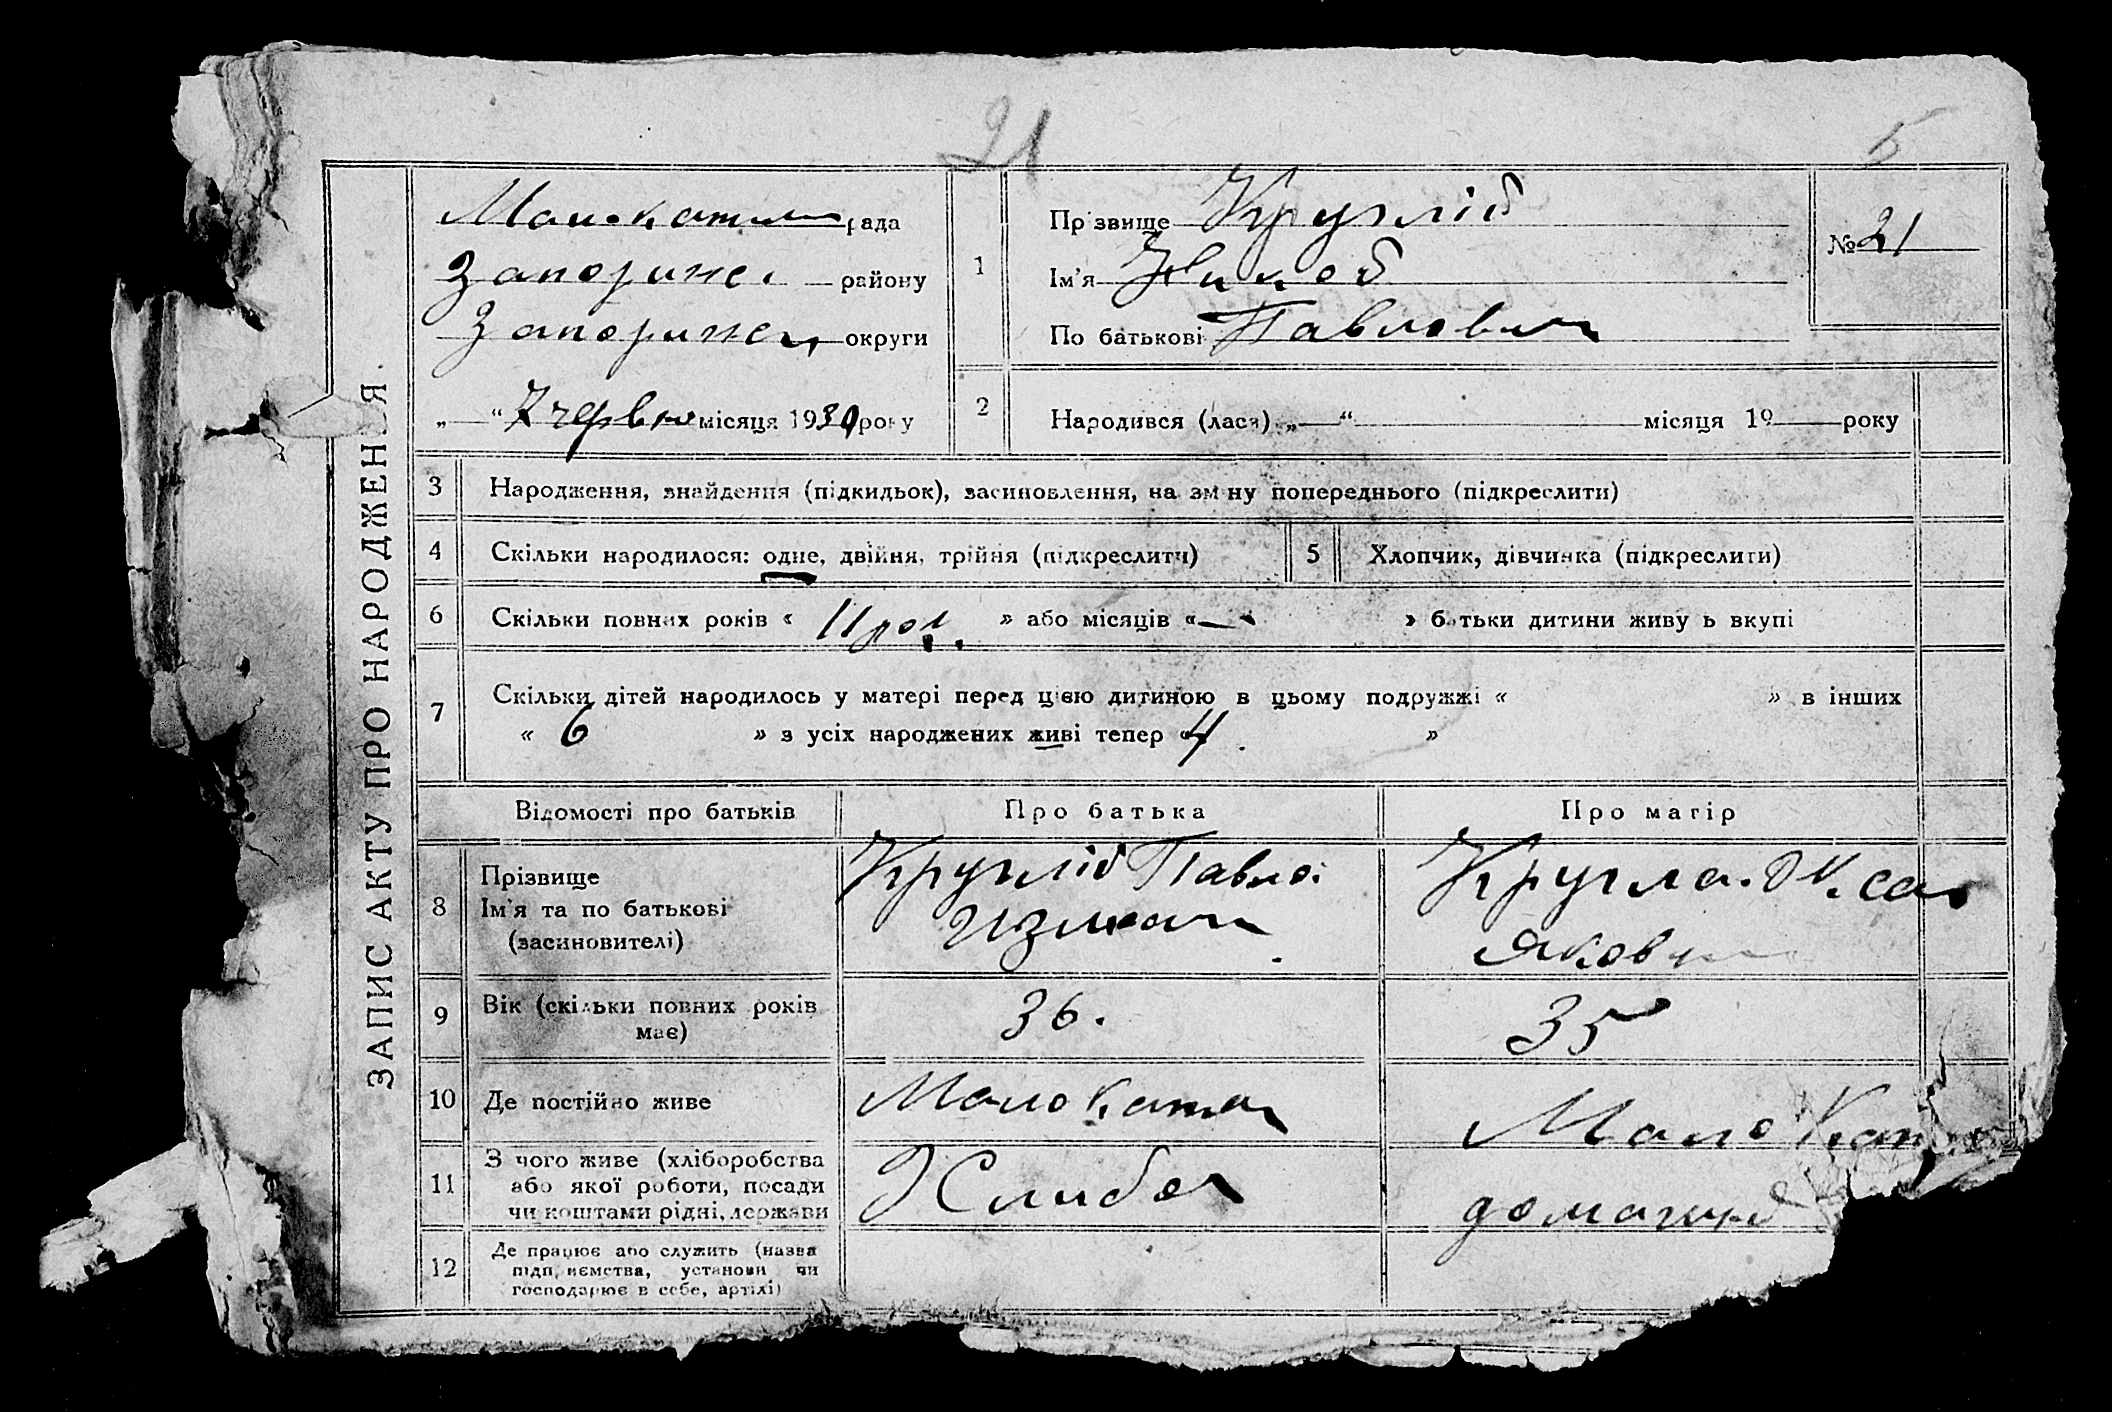 21
5
ЗАПИС АКТУ ПРО НАРОДЖЕННЯ.
рада
району
округи
„ “ 7 червн місяця 1930 року
1
Прізвище Круглій
Ім'я
По батькові Павлович
№ 21
2 Народився (лася) „—“ місяця 19 року
3 Народження, знайдення (підкидьок), засиновлення, на зміну попереднього (підкреслити)
4 Скільки народилося: одне, двійня, трійня (підкреслити)
5 Хлопчик, дівчинка (підкреслити)
6 Скільки повних років « 11 рок. » або місяців «—» батьки дитини живуть вкупі
7 Скільки дітей народилось у матері перед цією дитиною в цьому подружжі « » в інших
« 6 » з усіх народжених живі тепер « 4 . »
Відомості про батьків
Про батька
Про матір
8 Прізвище
Ім'я та по батькові
(засиновителі)
Круглій Павло
Кругла
9 Вік (скільки повних років
має)
36.
35
10 Де постійно живе
Мало Катер
Мало Кат
11 З чого живе (хліборобства
або якої роботи, посади
чи коштами рідні, держави
12 Де працює або служить (назва
підприємства, установи чи
господарює в себе, артілі)